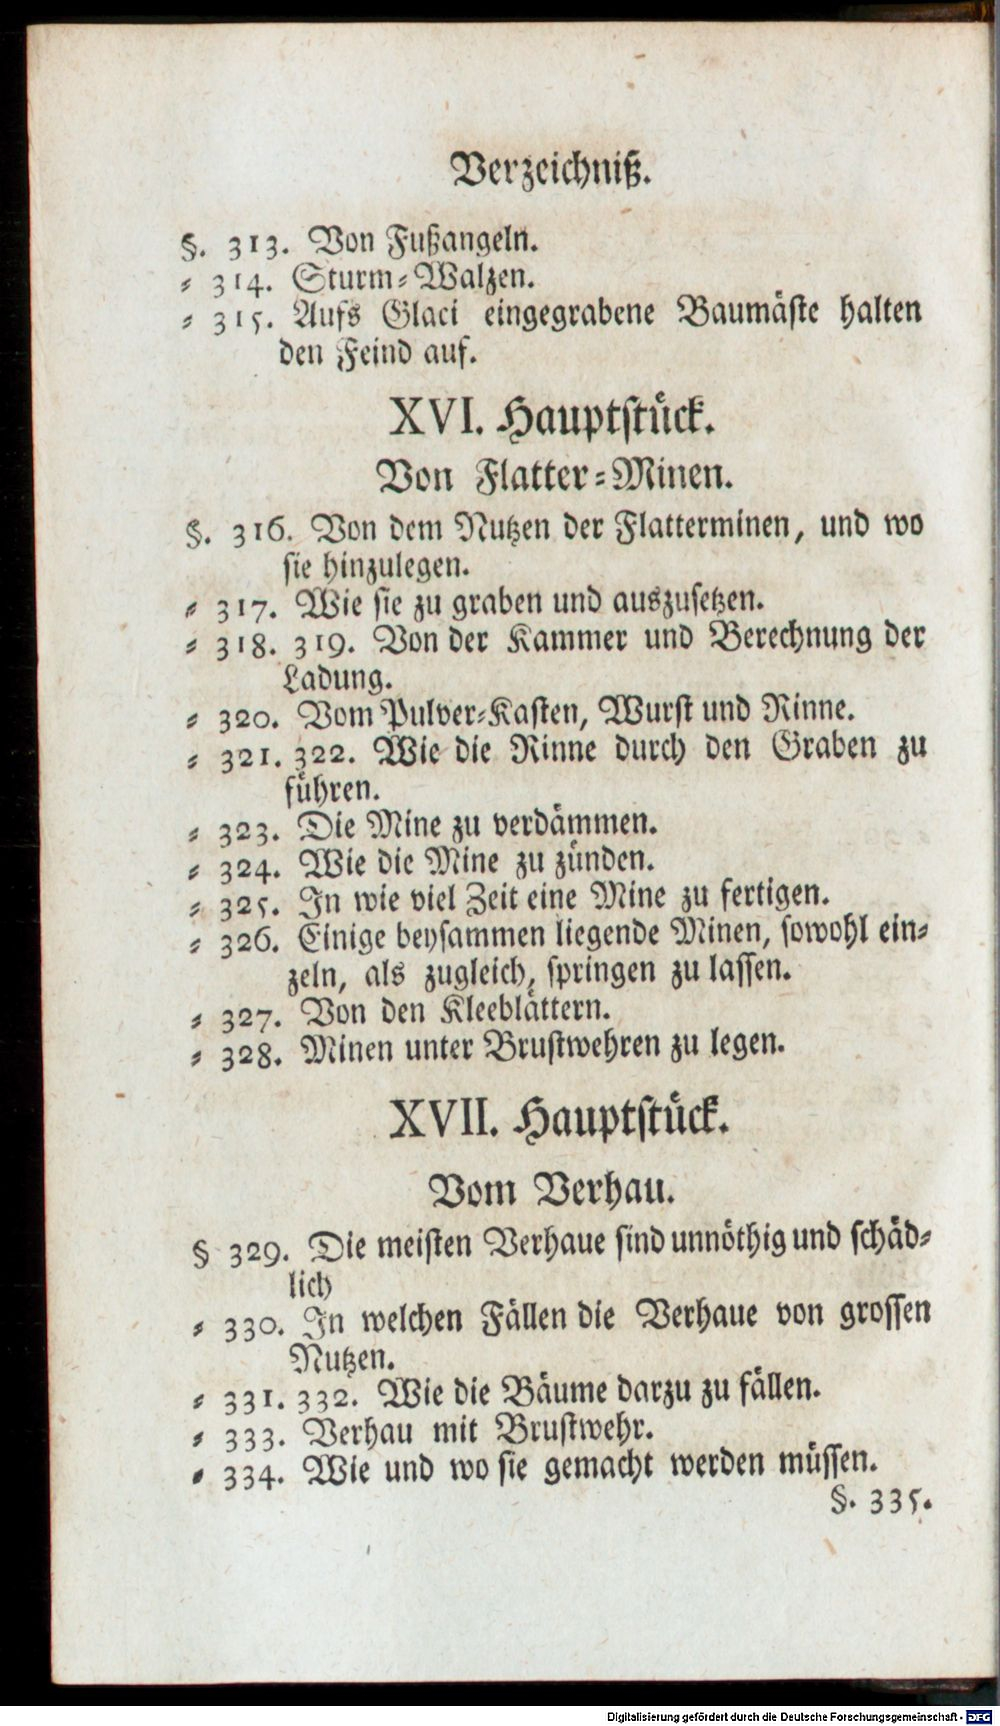 Verzeichniß.
§. 313. Von Fußangeln.
⸗ 314. Sturm⸗Walzen.
⸗ 315. Aufs Glaci eingegrabene Baumäste halten
den Feind auf.
XVI. Hauptstück.
Von Flatter⸗Minen.
§. 316. Von dem Nutzen der Flatterminen, und wo
sie hinzulegen.
⸗ 317. Wie sie zu graben und auszusetzen.
⸗ 318. 319. Von der Kammer und Berechnung der
Ladung.
⸗ 320. Vom Pulver⸗Kasten, Wurst und Rinne.
⸗ 321. 322. Wie die Rinne durch den Graben zu
führen.
⸗ 323. Die Mine zu verdämmen.
⸗ 324. Wie die Mine zu zünden.
⸗ 325. In wie viel Zeit eine Mine zu fertigen.
⸗ 326. Einige beysammen liegende Minen, sowohl ein⸗
zeln, als zugleich, springen zu lassen.
⸗ 327. Von den Kleeblättern.
⸗ 328. Minen unter Brustwehren zu legen.
XVII. Hauptstück.
Vom Verhau.
§ 329. Die meisten Verhaue sind unnöthig und schäd⸗
lich
⸗ 330. In welchen Fällen die Verhaue von grossen
Nutzen.
⸗ 331. 332. Wie die Bäume darzu zu fällen.
⸗ 333. Verhau mit Brustwehr.
⸗ 334. Wie und wo sie gemacht werden müssen.
§. 335.
Digitalisierung gefördert durch die Deutsche Forschungsgemeinschaft - DFG